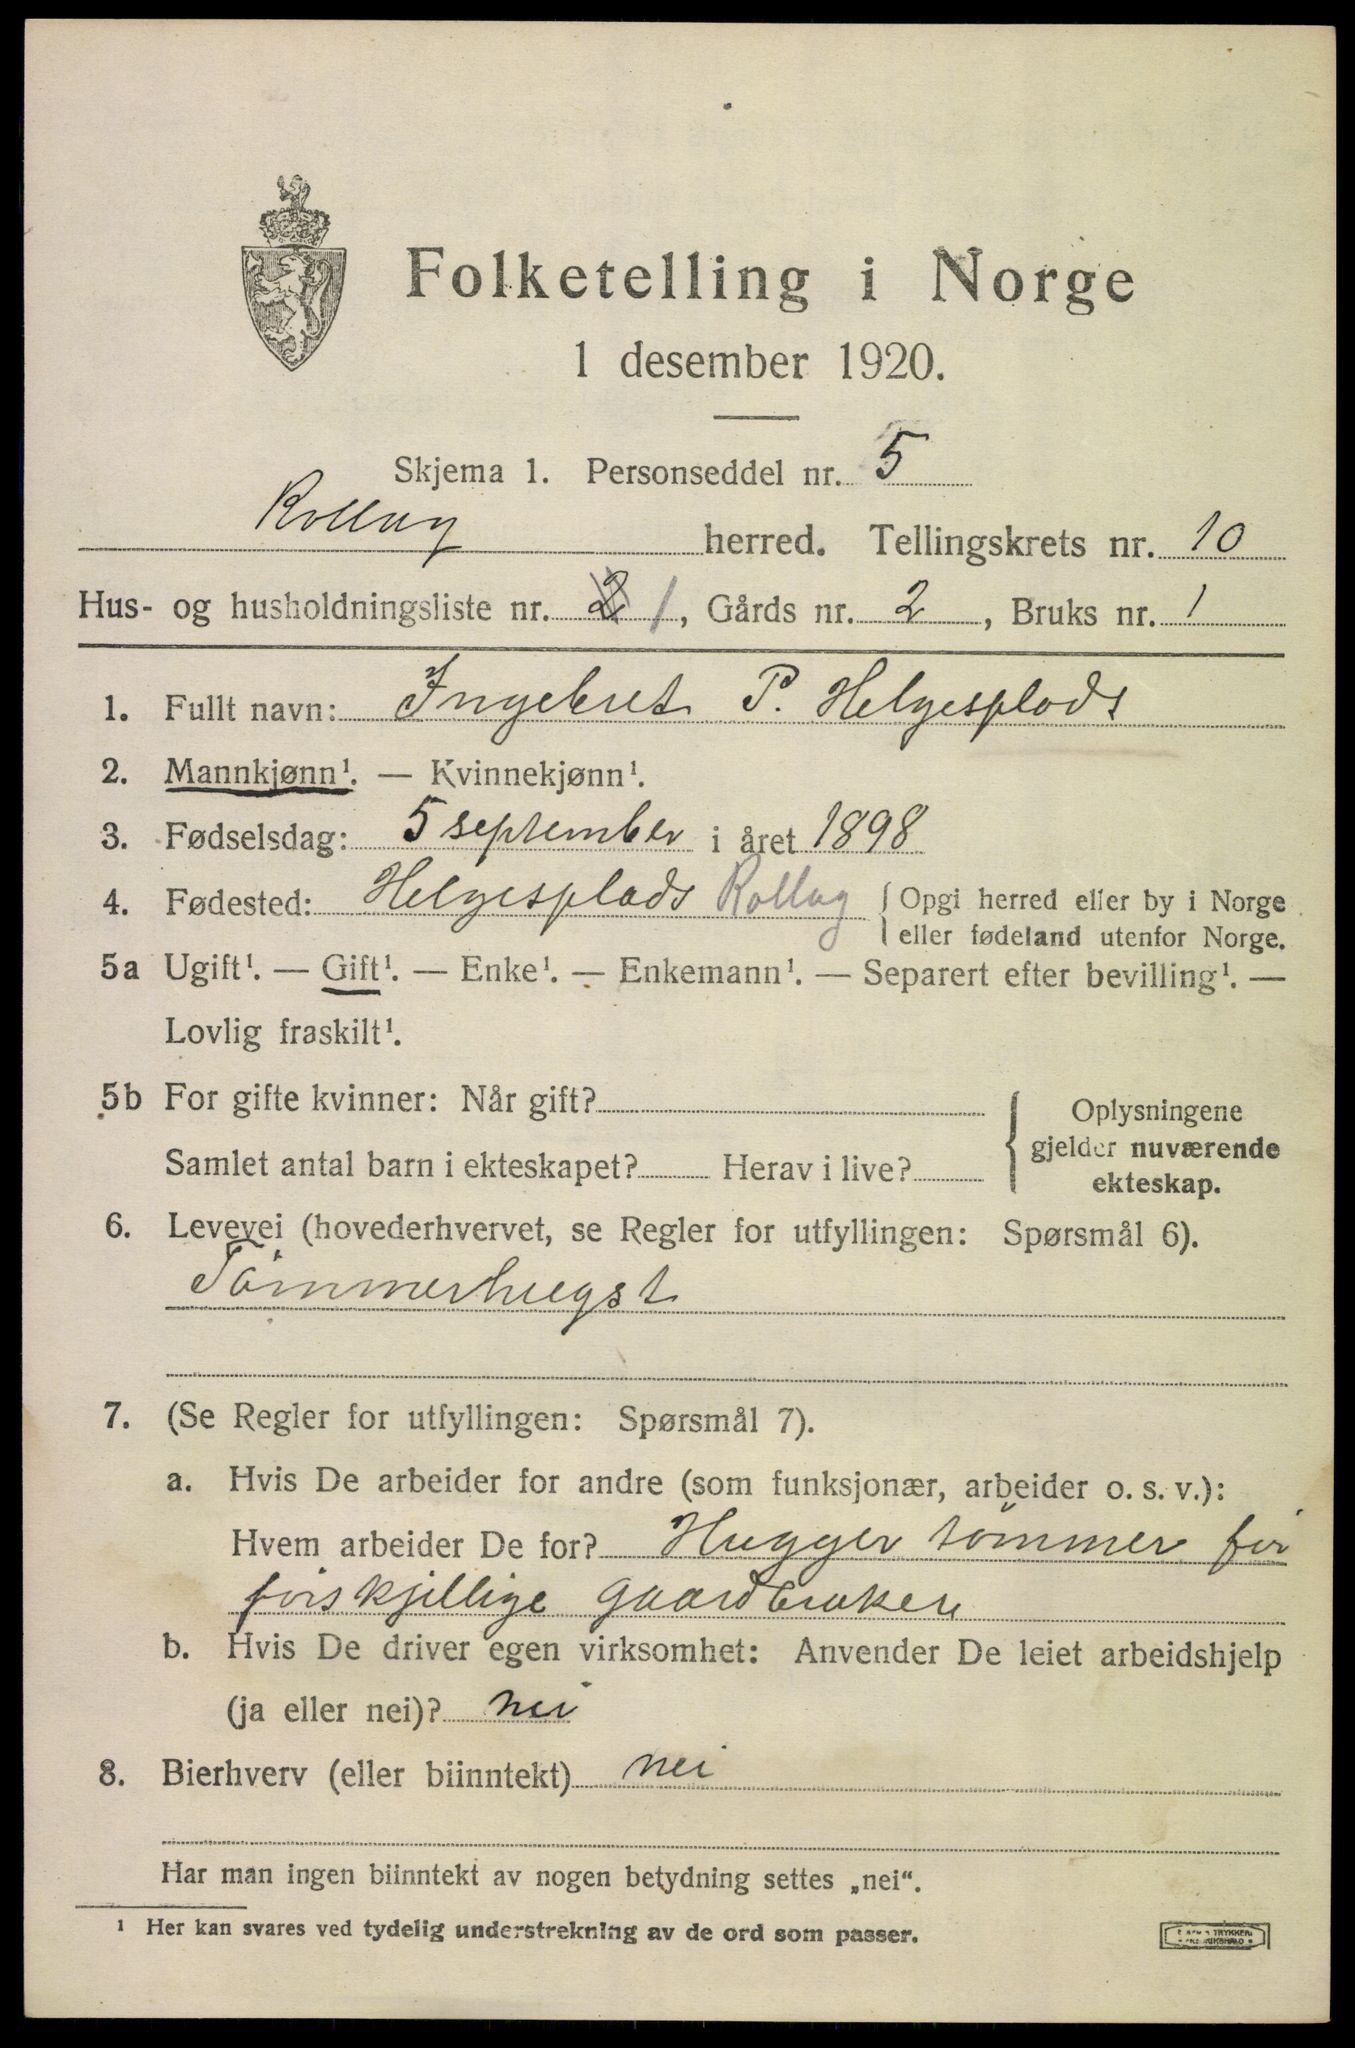 Folketelling i Norge
1 desember 1920.
Skjema 1. Personseddel nr. 5
Rollag herred. Tellingskrets nr. 10
Hus- og husholdningsliste nr. 2 1, Gårds nr. 2, Bruks nr. 1
1. Fullt navn: Ingebret P. Helgesplads
2. Mannkjønn¹. — Kvinnekjønn¹.
3. Fødselsdag: 5 september i året 1898
4. Fødested: Helgesplads Rollag { Opgi herred eller by i Norge
eller fødeland utenfor Norge.
5a Ugift¹. — Gift¹. — Enke¹. — Enkemann¹. — Separert efter bevilling¹. —
Lovlig fraskilt¹.
5b For gifte kvinner: Når gift?
Samlet antal barn i ekteskapet? Herav i live?
Oplysningene
gjelder nuværende
ekteskap.
6. Levevei (hovederhvervet, se Regler for utfyllingen: Spørsmål 6).
Tömmerhugst
7. (Se Regler for utfyllingen: Spørsmål 7).
a. Hvis De arbeider for andre (som funksjonær, arbeider o. s. v.):
Hvem arbeider De for? Hugger tömmer for
forskjellige gaardbrukere
b. Hvis De driver egen virksomhet: Anvender De leiet arbeidshjelp
(ja eller nei)? nei
8. Bierhverv (eller biinntekt) nei
Har man ingen biinntekt av nogen betydning settes „nei".
¹ Her kan svares ved tydelig understrekning av de ord som passer.